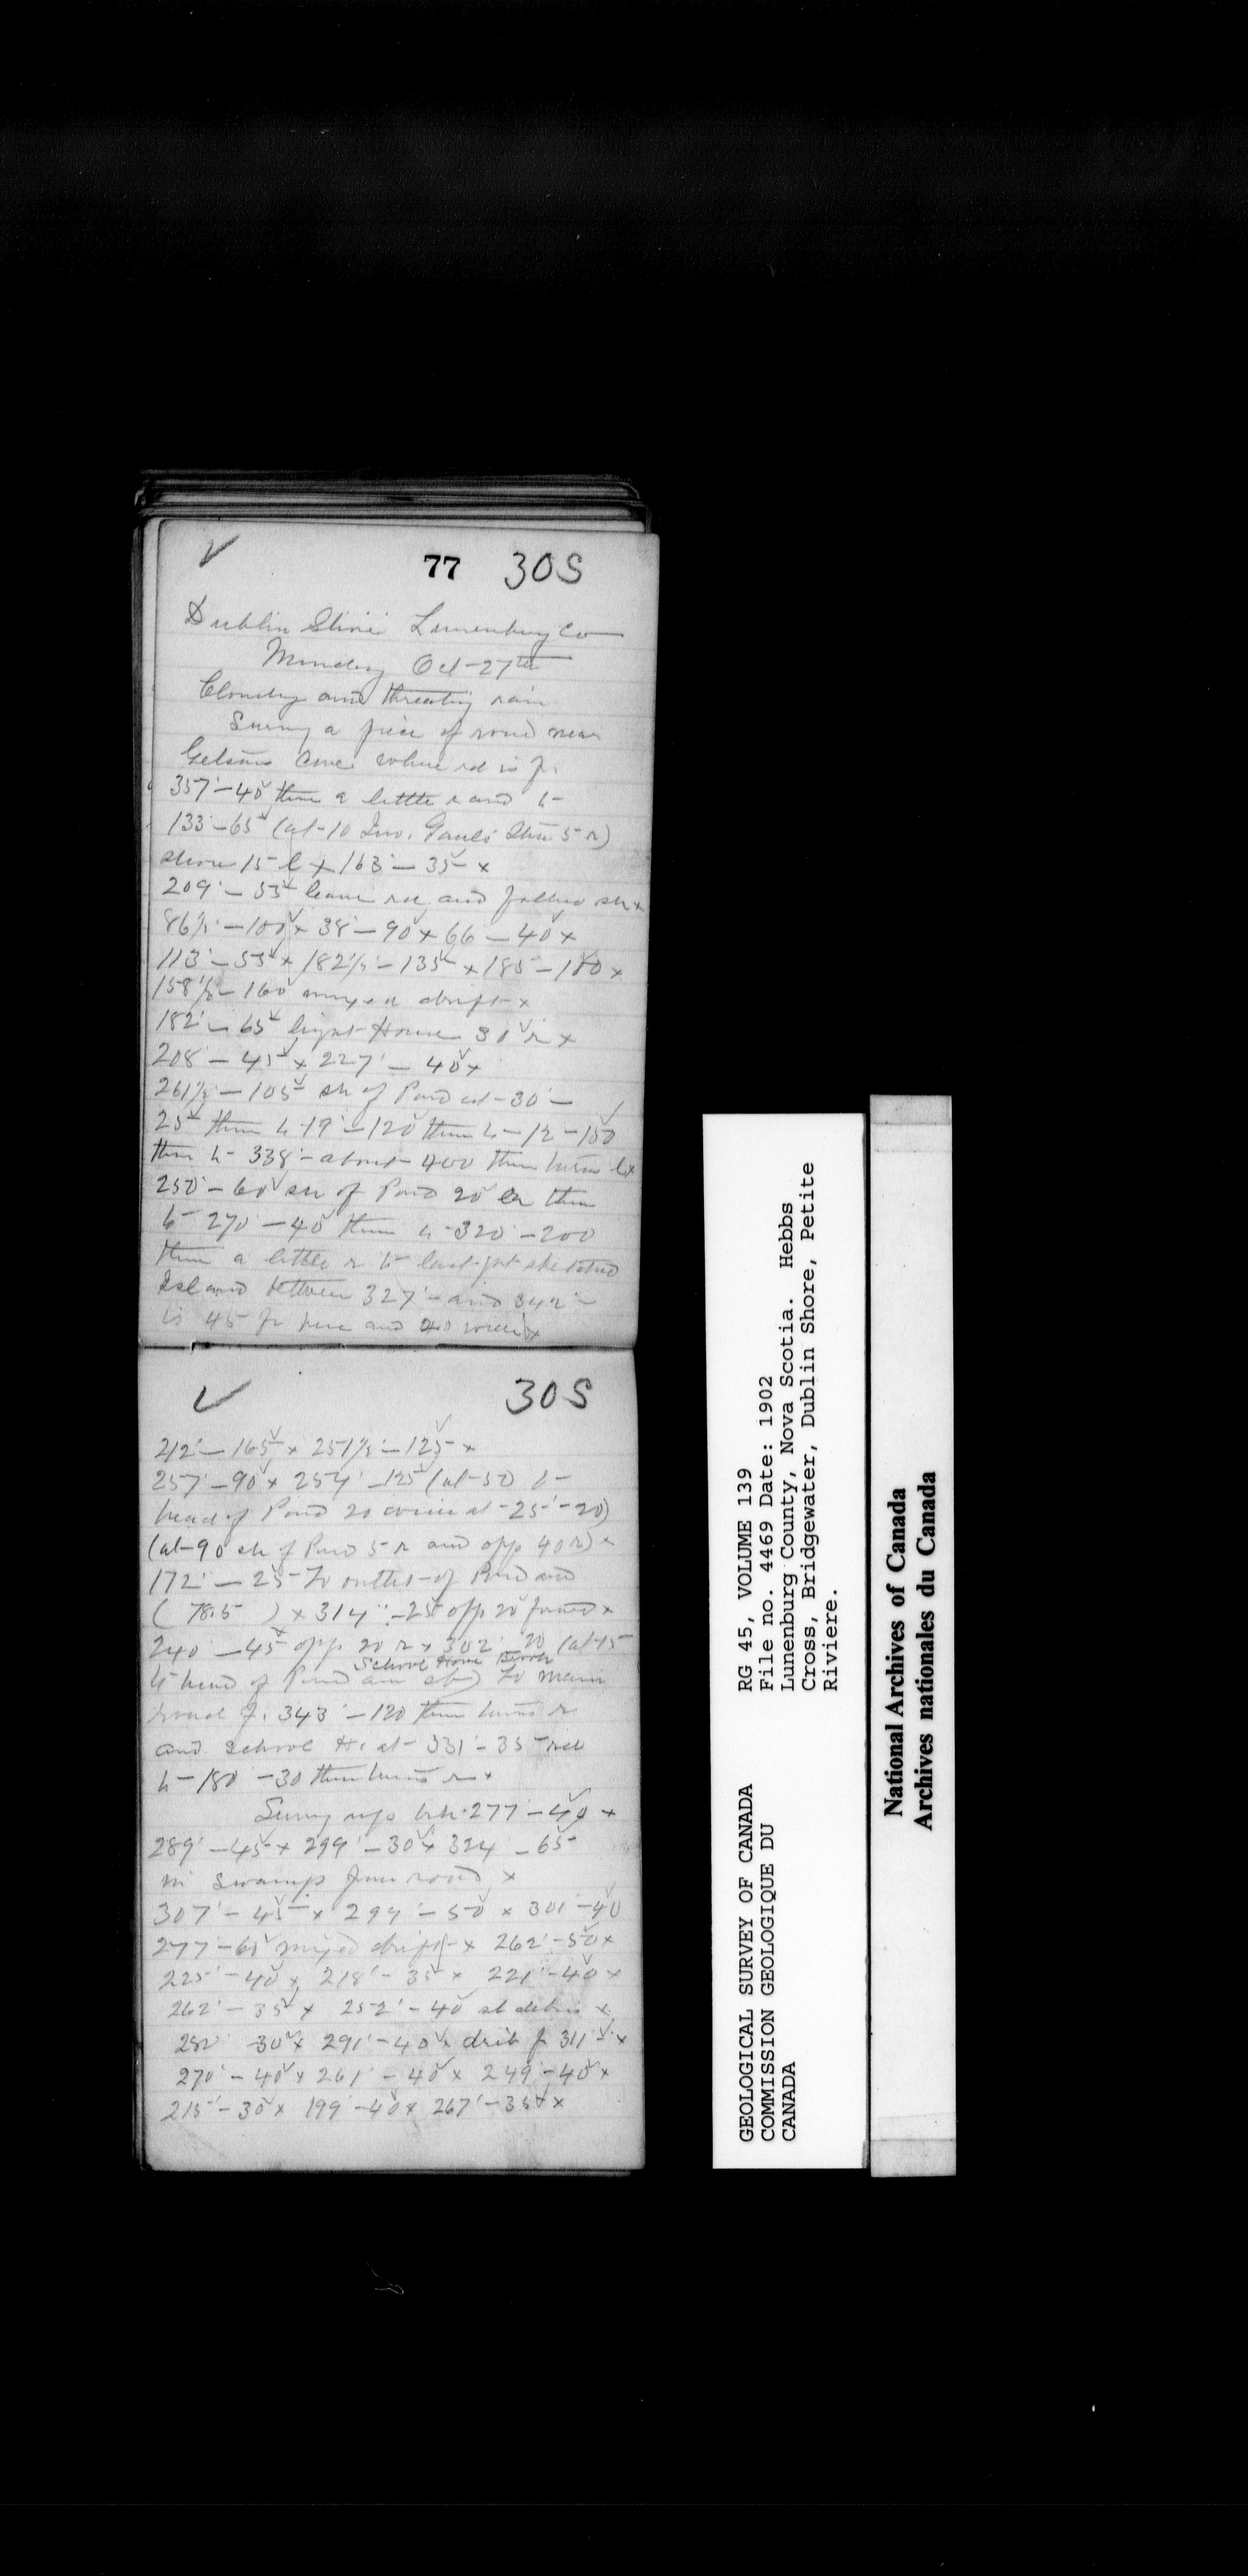 77 30S
Dublin Shore Lunenburg Co
Monday Oct 27th
Cloudy and threating rain
Survey a piece of road near
Cove where rd is fr
357' - 40 then a little r and
133' - 65 (at 10 Store 5 r)
shore 15 l x 163' - 35 x
209' - 55 leave rd and follow sh x
86½' - 100 x 38' - 90 x 66 - 40 x
113' - 55 x 182½' - 135 x 185 - 180 x
158½ - 160 mixed drift x
182' - 65 light House 30 r x
208' - 45 x 227' - 40 x
261½' - 105 sh of Pond at 30' -
25 then 19' - 120 then 12 - 150
then 338' - about 400 then turns l x
250' - 60 sh of Pond 20 then
270' - 40 then 320' - 200
then a little r to last pt sketched
Island between 327' and 342'
is 45 fr here and 40 x
30S
212' - 165 x 251½' - 125 x
257' - 90 x 254' - 125 (at 50
head of Pond 20 at 25' - 20)
(at 90 sh of Pond 5 r and opp 40 r) x
172' - 25 To outlet of Pond and
(78.5) x 314' - 25 opp 20 x
240 - 45 opp 20 r x 302' - 20 (at 15
School House
head of Pond To main
road fr 343' - 120 then turns r
and School H. at 331' - 35 rd
180 - 30 then turns r x
Survey 277' - 40 x
289' - 45 x 299' - 30 x 324' - 65
in swamp from road x
307' - 45 x 299' - 50 x 301' - 40
277' - 60 mixed drift x 262' - 50 x
225' - 40 x 218' - 35 x 221' - 40 x
262' - 35 x 252' - 40 debris x
282' - 30 x 291' - 40 x 311' x
270' - 40 x 261' - 40 x 249' - 40 x
215' - 30 x 199' - 40 x 267' - 35 x
GEOLOGICAL SURVEY OF CANADA
COMMISSION GEOLOGIQUE DU
CANADA
RG 45, VOLUME 139
File no. 4469 Date: 1902
Lunenburg County, Nova Scotia. Hebbs
Cross, Bridgewater, Dublin Shore, Petite
Riviere.
National Archives of Canada
Archives nationales du Canada